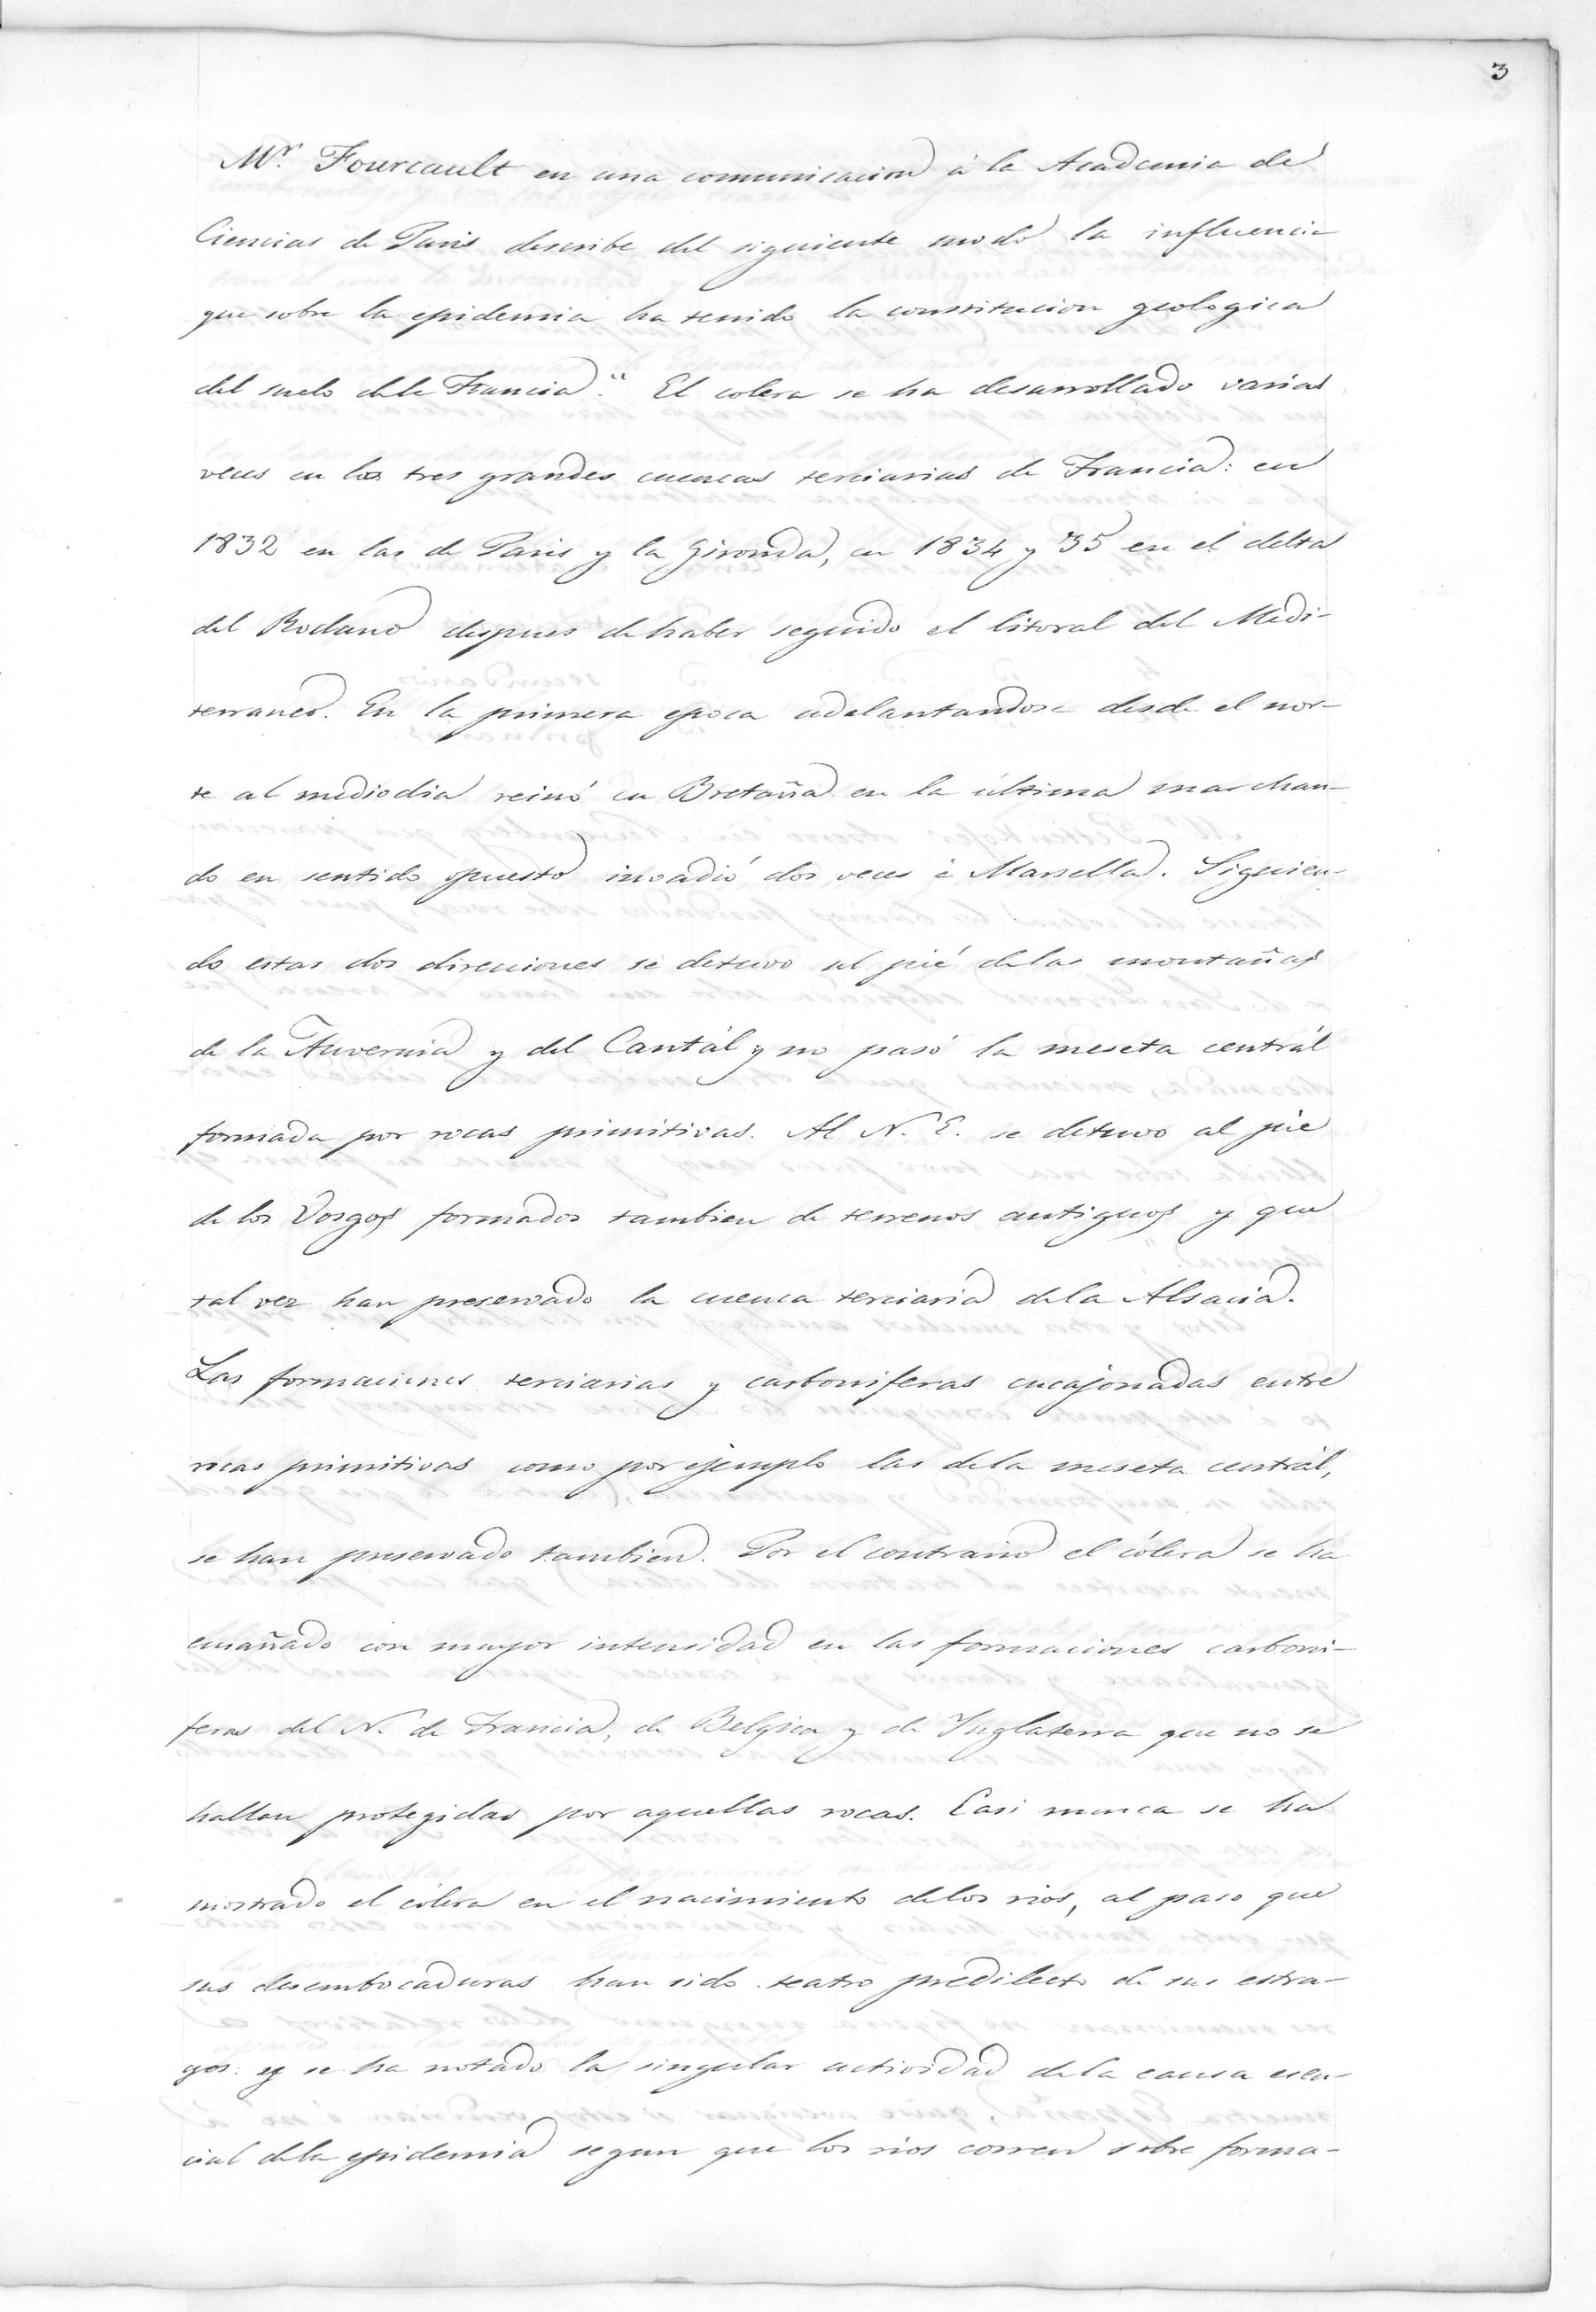 3
Mr. Fourcault en una comunicacion á la Academia de
Ciencias de Paris describe del siguiente modo la influencia
que sobre la epidemia ha tenido la constitucion geologica
del suelo dela Francia." El colera se ha desarrollado varias
veces en las tres grandes cuencas terciarias de Francia: en
1832 en las de Paris y la Gironda, en 1834 y 35 en el delta
del Rodano despues de haber seguido el litoral del Medi-
terraneo. En la primera epoca adelantandose desde el nor-
te al mediodia reinó en Bretaña en la última marchan-
do en sentido opuesto invadió dos veces á Marsella. Siguien-
do estas dos direcciones se detuvo al pié delas montañas
de la Auvernia y del Cantál y no pasó la meseta centrál
formada por rocas primitivas. Al N.E. se detuvo al pie
de los Vosgos formados tambien de terrenos antiguos y que
tal vez han preservado la cuenca terciaria dela Alsacia.
Las formaciones terciarias y carboniferas encajonadas entre
rocas primitivas como por ejemplo las dela meseta centrál,
se han preservado tambien. Por el contrario el cólera se ha
ensañado con mayor intensidad en las formaciones carboni-
feras del N. de Francia, de Belgica y de Inglaterra que no se
hallan protegidas por aquellas rocas. Casi nunca se ha
mostrado el cólera en el nacimiento delos rios, al paso que
sus desembocaduras han sido teatro predilecto de sus estra-
gos: y se ha notado la singular actividad dela causa esen-
cial dela epidemia segun que los rios corren sobre forma-